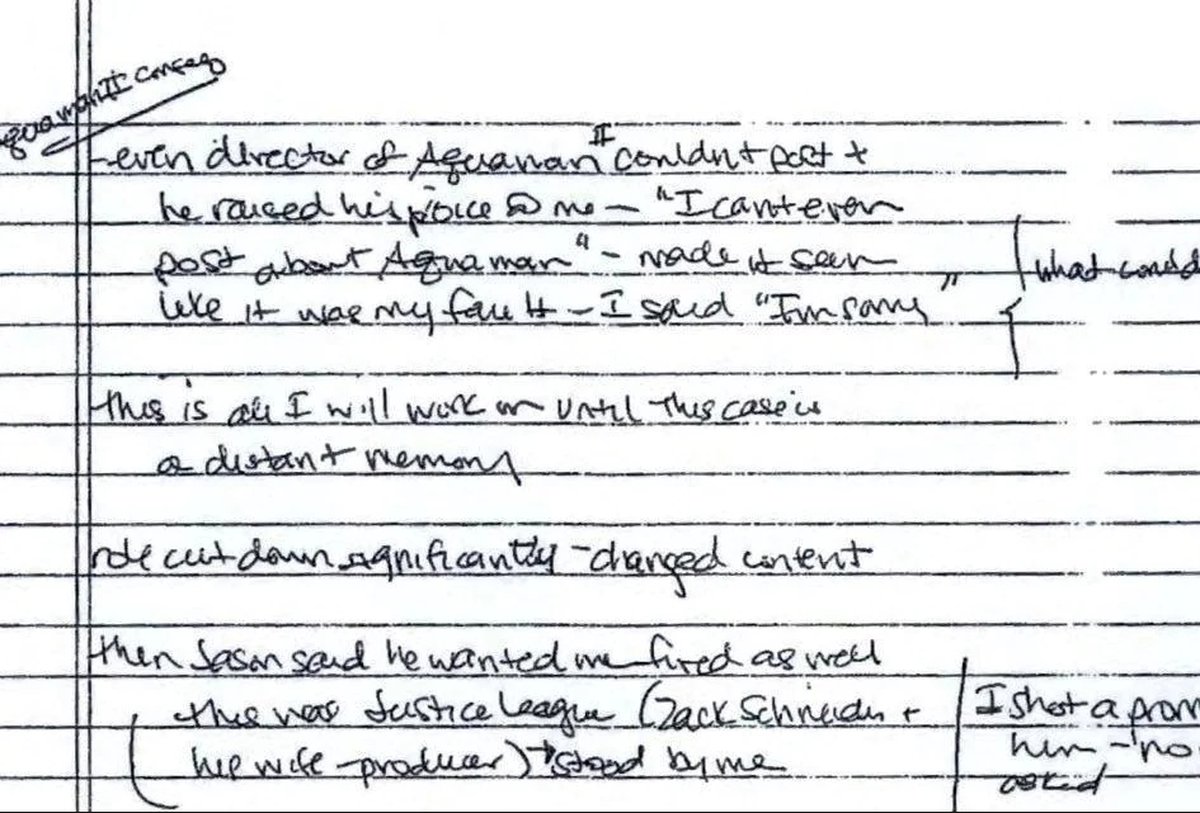 quaman II conseq
- even director of Aquaman II couldn't post +
he raised his voice @ me - "I cant even
post about Aquaman" - made it seem
like it was my fault - I said "I'm sorry"
what could
this is all I will work on until this case is
a distant memory
role cut down significantly - changed content
then Jason said he wanted me fired as well
this was Justice League (Zack Schneider +
his wife - producer) → stood by me
I shot a prom
him - no
asked